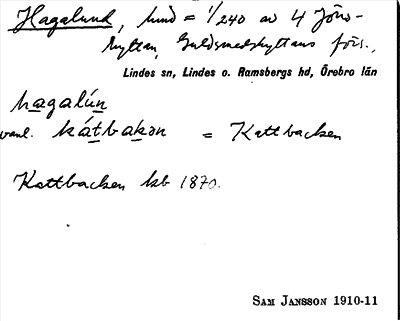 Hagalund, lund = 1/240 av 4 Jöns-
hyttan, Guldsmedshyttans förs.,
Lindes sn, Lindes o. Ramsbergs hd, Örebro län
hagalún
vanl. kátbakan = Kattbacken
Kattbacken kb 1870.
SAM JANSSON 1910-11